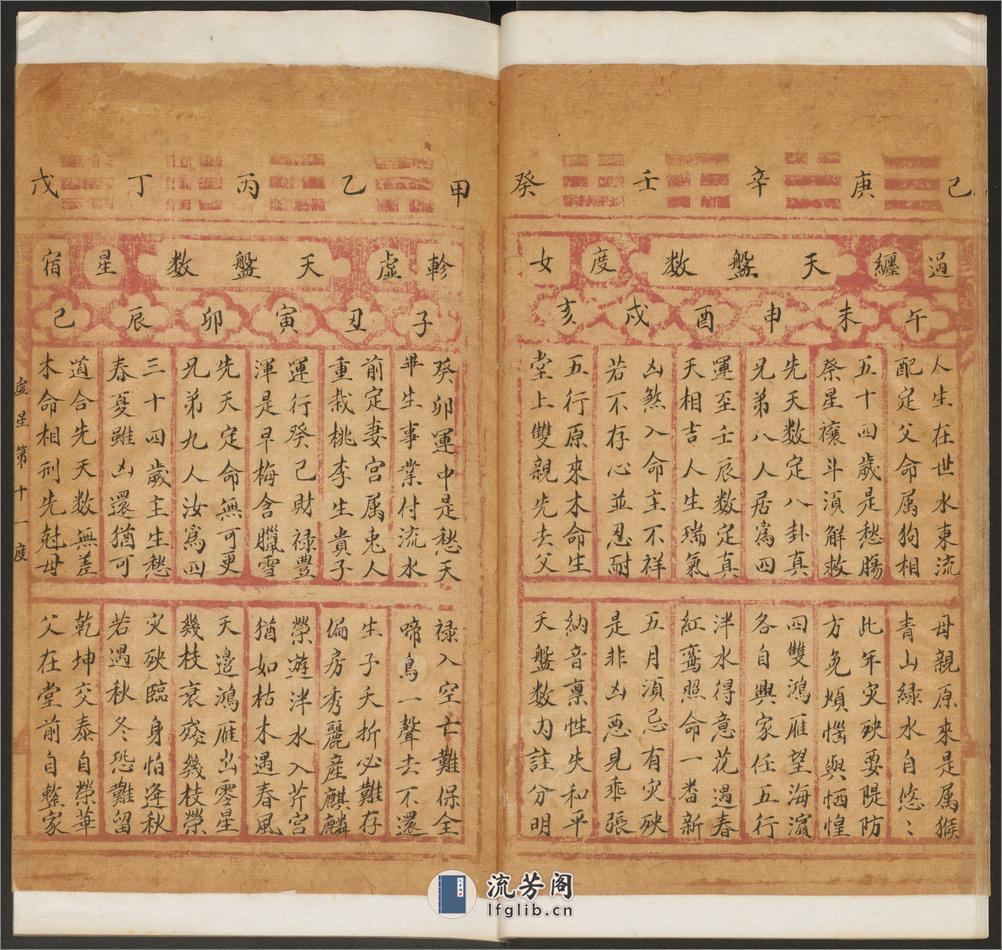 己 庚 辛 壬 癸
過纏 天盤数 度女
午 未 申 酉 戌 亥
人生在世水東流
配定父命属狗相
五十四歲是愁腸
祭星禳斗須解救
先天数定八卦真
兄弟八人居爲四
運至壬辰数定真
天相吉人生瑞氣
凶煞入命主不祥
若不存心並忍耐
五行原來木命生
堂上雙親先去父
母親原來是属猴
青山緑水自悠〻
此年灾殃要隄防
方免煩惱與恓惶
四雙鴻雁望海濱
各自興家任五行
泮水得意花遇春
紅鸾照命一番新
五月須忌有灾殃
是非凶惡見乖張
納音稟性失和平
天盤数内註分明
甲 乙 丙 丁 戊
軫虛 天盤数 星宿
子 丑 寅 卯 辰 巳
癸卯運中是愁天
畢生事業付流水
前定妻宫属兎人
重栽桃李生貴子
運行癸巳財禄豐
渾是早梅含臘雪
先天定命無可更
兄弟九人汝爲四
三十四歲主生愁
春夏雖凶還猶可
道合先天数無差
木命相刑先尅母
禄入空亡難保全
啼鳥一聲去不還
生子夭折必難存
偏房秀麗産麒麟
榮遊泮水入芹宫
猶如枯木遇春風
天邊鴻雁出零星
幾枝衰殘幾枝榮
灾殃臨身怕逢秋
若遇秋冬恐難留
乾坤交泰自榮華
父在堂前自整家
虛星第十一度
流芳阁
lfglib.cn